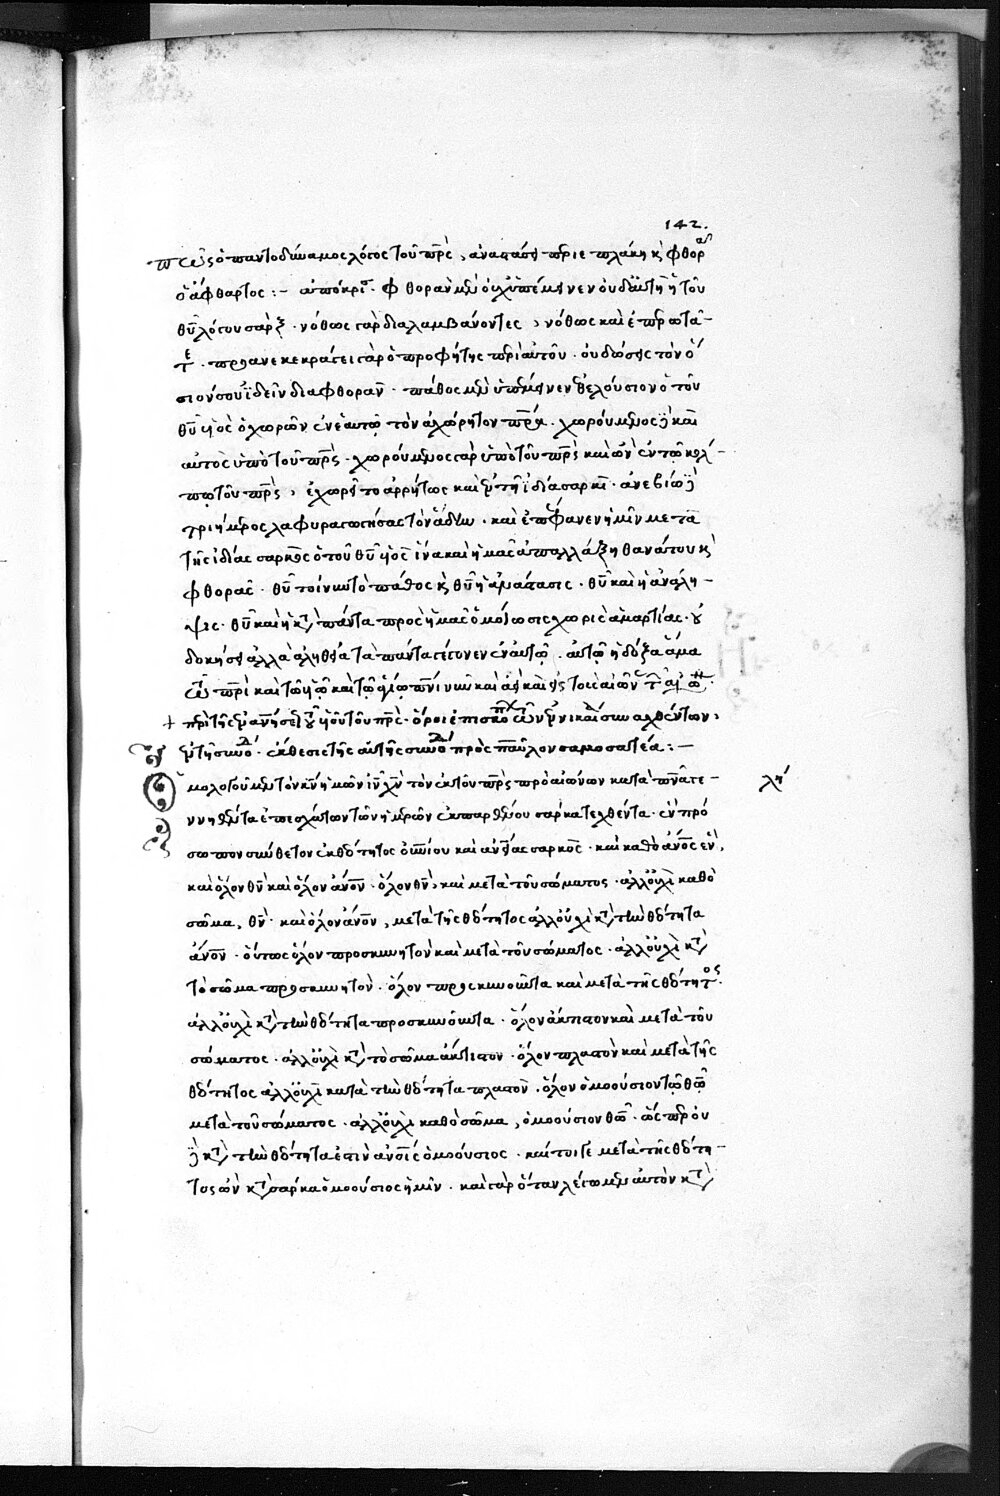 142.
πῶς ὁ παντοδύναμος λόγος τοῦ πρς, ἀναστάσει περιεπλάκη κ φθορ
ὁ ἄφθαρτος :- ἀπόκρι. φθορὰν μὲν οὐχ ὑπέμεινεν οὐδὲ αὐτὴ ἡ τοῦ
θυ λόγου σάρξ. νόθως γὰρ διαλαμβάνοντες, νόθως καὶ ἐπερωτᾶ-
τε. προανεκεκράγει γὰρ ὁ προφήτης περὶ αὐτοῦ. οὐ δώσεις τὸν ὅ
σιόν σου ἰδεῖν διαφθοράν. πάθος μὲν ὑπέμεινεν ἑκούσιον ὁ τοῦ
θυ υἱὸς ὁ χωρῶν ἐν ἑαυτῷ τὸν ἀχώρητον πρα. χωρούμενος καὶ
αὐτὸς ὑπὸ τοῦ πρς. χωρούμενος γὰρ ὑπὸ τοῦ πρς καὶ ὢν ἐν τῷ κόλ-
πῳ τοῦ πρς, ἐχωρεῖτο ἀρρήτως καὶ ἐν τῇ ἰδίᾳ σαρκί. ἀνεβίω
τριήμερος λαφυραγωγήσας τὸν ἅδην. καὶ ἐπεφάνεν ἡμῖν μετὰ
τῆς ἰδίας σαρκὸς ὁ τοῦ θυ υἱὸς ἵνα καὶ ἡμᾶς ἀπαλλάξῃ θανάτου κ
φθορᾶς. θυ τοίνυν τὸ πάθος κ θυ ἡ ἀνάστασις. θυ καὶ ἡ ἀνάλη-
ψις. θυ καὶ ἡ κτ πάντα πρὸς ἡμᾶς ὁμοίωσις χωρὶς ἁμαρτίας. οὐ
δοκήσει ἀλλὰ ἀληθείᾳ τὰ πάντα γέγονεν ἐν αὐτῷ. αὐτῷ ἡ δόξα ἅμα
σὺν πρὶ καὶ τῷ υἱῷ καὶ τῷ ἁγίῳ πνι νῦν καὶ ἀεὶ καὶ εἰς τοὺς αἰῶν τ αἰ ἀμ.
+ περὶ τῆς ἐνανσεως τοῦ λόγου υἱοῦ τοῦ πρς. ὅροι ἐπισκόπων ἐν νικαίᾳ συναχθέντων,
ἐν τῇ συνόδ. ἔκθεσις τῆς αὐτῆς συνόδ πρὸς παῦλον σαμοσατέα :-
ὁμολογοῦμεν τὸν κν ἡμῶν ιν χν τὸν ἐκ τοῦ πρς πρὸ αἰώνων κατὰ πνα γε-
ννηθέντα ἐπ' ἐσχάτων τῶν ἡμερῶν ἐκ παρθένου σάρκα τεχθέντα. ἓν πρό
σωπον σύνθετον ἐκ θεότητος οὐνίου καὶ ἀνείας σαρκός. καὶ καθὸ ἄνος ἕν,
καὶ ὅλον θν καὶ ὅλον ἄνον. ὅλον θν, καὶ μετὰ τοῦ σώματος. ἀλλ' οὐχὶ καθὸ
σῶμα, θν. καὶ ὅλον ἄνον, μετὰ τῆς θεότητος ἀλλ' οὐχὶ κτ τὴν θεότητα
ἄνον. οὕτως ὅλον προσκυνητὸν καὶ μετὰ τοῦ σώματος. ἀλλ' οὐχὶ κτ
τὸ σῶμα προσκυνητόν. ὅλον προσκυνοῦντα καὶ μετὰ τῆς θεότητος.
ἀλλ' οὐχὶ κτ τὴν θεότητα προσκυνοῦντα. ὅλον ἄκτιστον καὶ μετὰ τοῦ
σώματος. ἀλλ' οὐχὶ κτ τὸ σῶμα ἄκτιστον. ὅλον πλαστὸν καὶ μετὰ τῆς
θεότητος ἀλλ' οὐχὶ κατὰ τὴν θεότητα πλαστόν. ὅλον ὁμοούσιον τῷ θω
μετὰ τοῦ σώματος. ἀλλ' οὐχὶ καθὸ σῶμα, ὁμοούσιον θω. ὥσπερ οὐ
κτ τὴν θεότητα ἐστὶν ἀνοις ὁμοούσιος. καίτοιγε μετὰ τῆς θεότη-
τος ὢν κτ σάρκα ὁμοούσιος ἡμῖν. καὶ γὰρ ὅταν λέγωμεν αὐτὸν κτ
λη